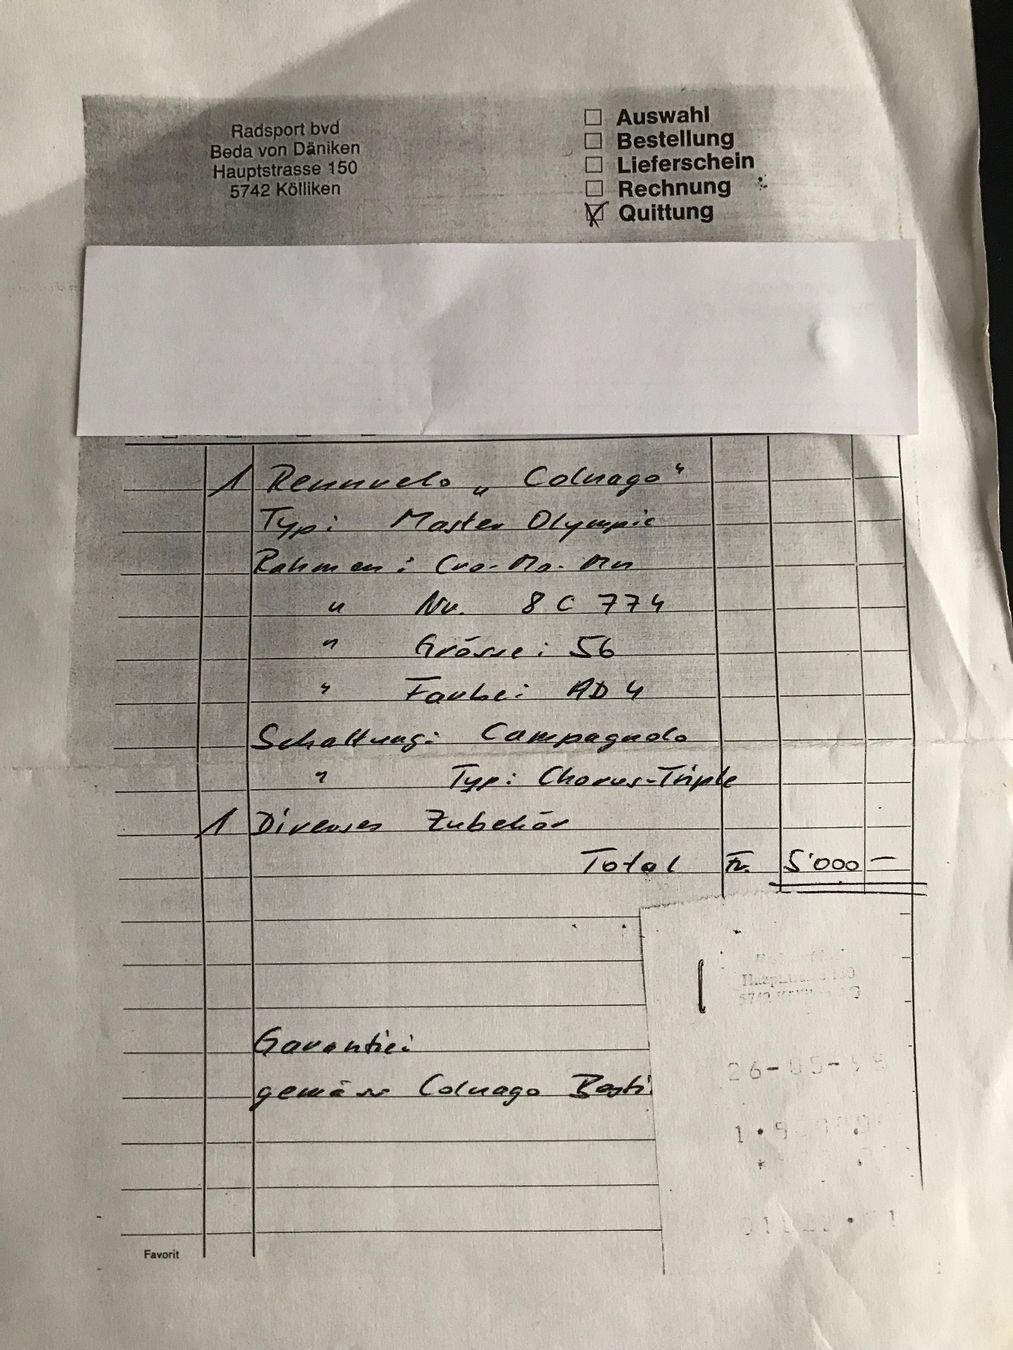 Radsport bvd
Beda von Däniken
Hauptstrasse 150
5742 Kölliken
Auswahl
Bestellung
Lieferschein
Rechnung
Quittung
1 Rennvelo „ Colnago "
Typ: Master Olympic
Rahmen: Cro-Mo-Mn
" Nr. 8 C 774
" Grösse: 56
" Farbe: AD 4
Schaltung: Campagnolo
" Typ: Chorus-Triple
1 Diverses Zubehör
Total Fr. 5'000 —
Garantie:
gemäss Colnago Besti
Favorit